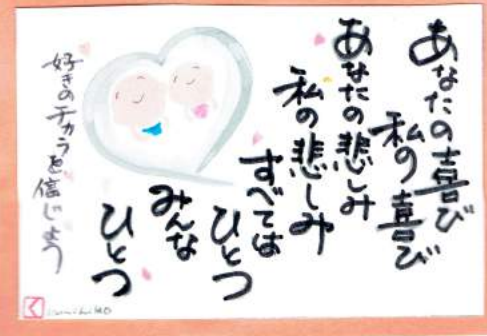 あなたの喜び
私の喜び
あなたの悲しみ
私の悲しみ
すべては
ひとつ
みんな
ひとつ
好きのチカラを信じよう
く